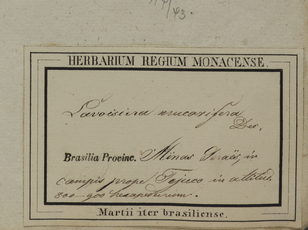 HERBARIUM REGIUM MONACENSE.
Lavoisiera mucorifera
Dec.
Brasilia Provinc. Minas Geraës, in
campis prope Tejuco in altitud.
800-900 hexapodum.
Martii iter brasiliense.